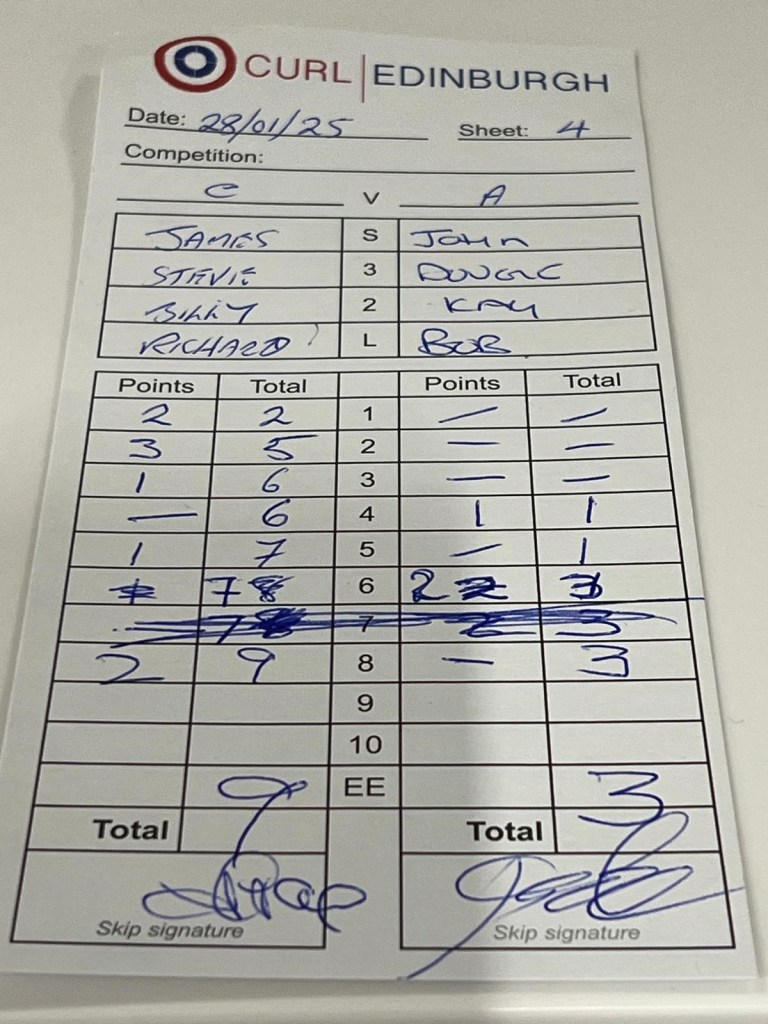 CURL | EDINBURGH
Date: 28/01/25 Sheet: 4
Competition:
C V A
JAMES S JOHN
STEVIE 3 DOUGIE
BILLY 2 KAY
RICHARD L BOB
Points Total Points Total
2 2 1 — —
3 5 2 — —
1 6 3 — —
— 6 4 1 1
1 7 5 — 1
7 8 6 2 2 3
7 8 7 2 3
2 9 8 — 3
9
10
9 EE 3
Total Total
Skip signature Skip signature